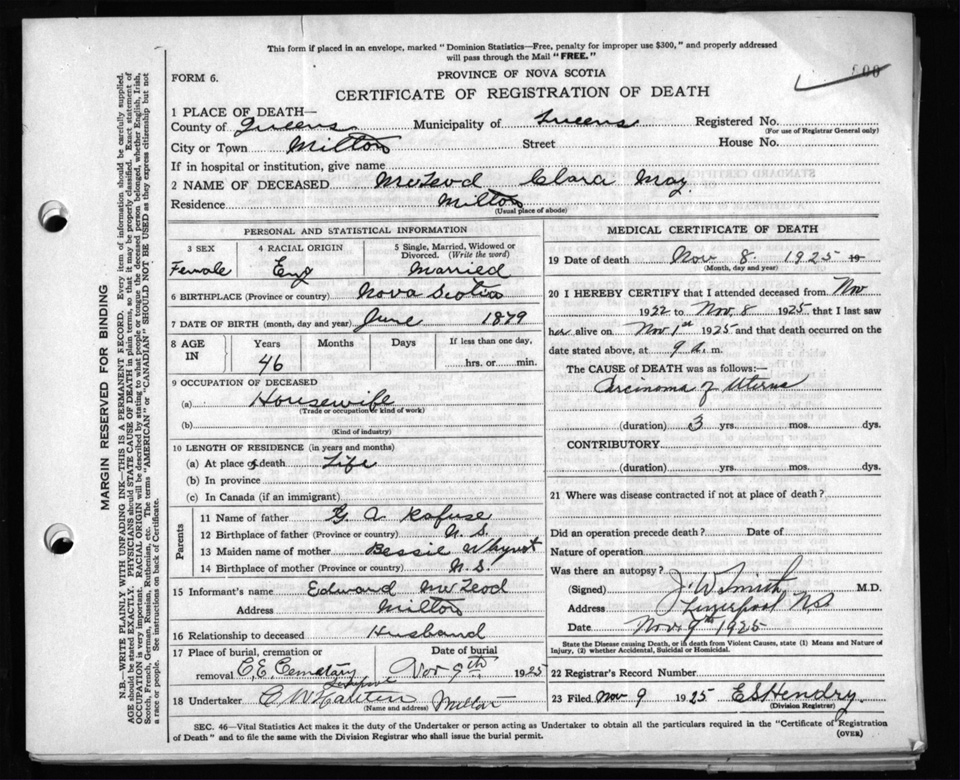 This form if placed in an envelope, marked "Dominion Statistics—Free, penalty for improper use $300," and properly addressed
will pass through the Mail "FREE."
FORM 6.
PROVINCE OF NOVA SCOTIA
CERTIFICATE OF REGISTRATION OF DEATH
1 PLACE OF DEATH—
County of Queens Municipality of Queens Registered No.
(For use of Registrar General only)
City or Town Milton Street House No.
If in hospital or institution, give name
2 NAME OF DECEASED McLeod Clara May
Residence Milton
(Usual place of abode)
PERSONAL AND STATISTICAL INFORMATION
3 SEX 4 RACIAL ORIGIN 5 Single, Married, Widowed or Divorced. (Write the word)
Female Eng Married
6 BIRTHPLACE (Province or country) Nova Scotia
7 DATE OF BIRTH (month, day and year) June 1879
8 AGE IN Years Months Days If less than one day,
46 hrs. or min.
9 OCCUPATION OF DECEASED
(a) Housewife
(Trade or occupation or kind of work)
(b)
(Kind of industry)
10 LENGTH OF RESIDENCE (in years and months)
(a) At place of death Life
(b) In province
(c) In Canada (if an immigrant)
Parents
11 Name of father G A Rafuse
12 Birthplace of father (Province or country) N.S.
13 Maiden name of mother Bessie Whynot
14 Birthplace of mother (Province or country) N.S.
15 Informant's name Edward McLeod
Address Milton
16 Relationship to deceased Husband
17 Place of burial, cremation or removal Date of burial
C.E. Cemetary Nov 9th 1925
18 Undertaker Milton
(Name and address)
MEDICAL CERTIFICATE OF DEATH
19 Date of death Nov 8. 1925 19
(Month, day and year)
20 I HEREBY CERTIFY that I attended deceased from Nov
1922 to Nov. 8 1925 that I last saw
her alive on Nov 1st 1925 and that death occurred on
date stated above, at 9 a.m.
The CAUSE OF DEATH was as follows:
Carcinoma of Uterus
(duration) 3 yrs. mos. dys.
CONTRIBUTORY
(duration) yrs. mos. dys.
21 Where was disease contracted if not at place of death?
Did an operation precede death? Date of
Nature of operation
Was there an autopsy?
(Signed) J. W Smith M.D.
Address Liverpool NS
Date Nov. 9th 1925
State the Disease causing Death, or in death from Violent Causes, state (1) Means and Nature of
Injury, (2) whether Accidental, Suicidal or Homicidal.
22 Registrar's Record Number
23 Filed Nov 9 1925 E S Hendry
(Division Registrar)
SEC. 46—Vital Statistics Act makes it the duty of the Undertaker or person acting as Undertaker to obtain all the particulars required in the "Certificate of Registration
of Death" and to file the same with the Division Registrar who shall issue the burial permit.
(OVER)
MARGIN RESERVED FOR BINDING
N.B.—WRITE PLAINLY WITH UNFADING INK—THIS IS A PERMANENT RECORD. Every item of information should be carefully supplied.
AGE should be stated EXACTLY. PHYSICIANS should STATE CAUSE OF DEATH in plain terms, so that it may be properly classified. Exact statement of
OCCUPATION is very important. RACIAL ORIGIN will be described by stating to what people or tongue the deceased person belonged, whether English, Irish,
Scotch, French, German, Russian, Ruthenian, etc. The terms "AMERICAN" or "CANADIAN" SHOULD NOT BE USED as they express citizenship but not
a race or people. See instructions on back of Certificate.